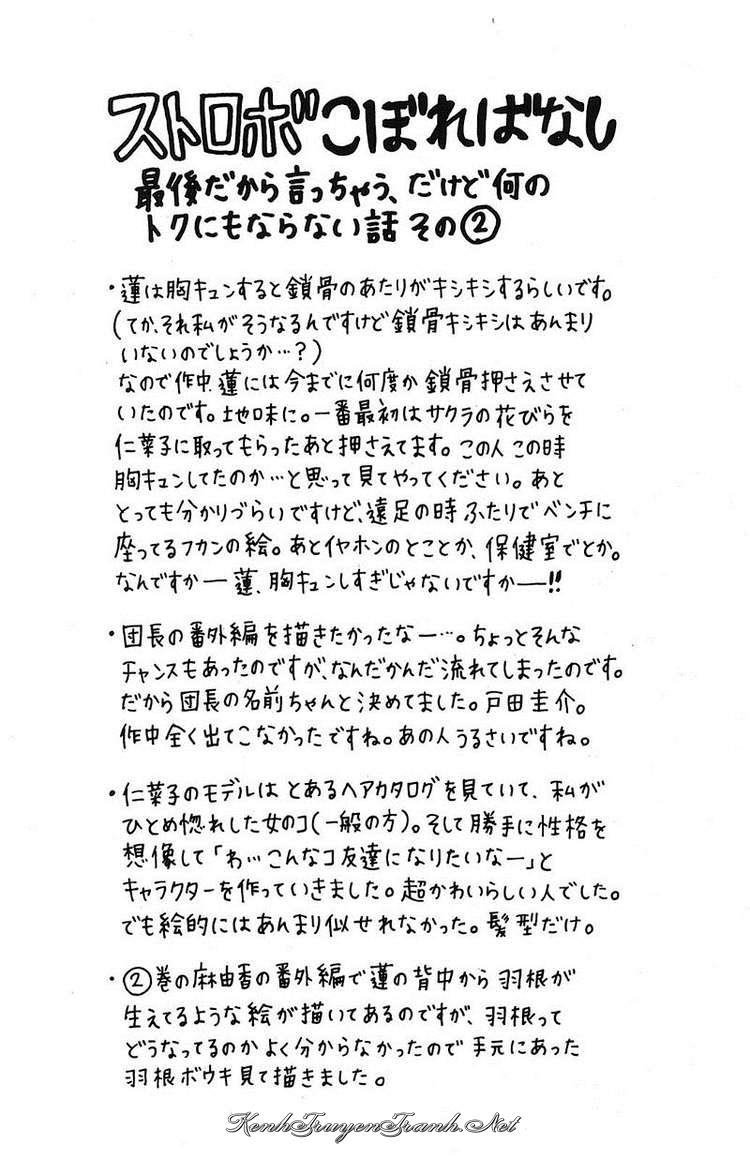 ストロボこぼればなし
最後だから言っちゃう、だけど何の
トクにもならない話 その②
・蓮は胸キュンすると鎖骨のあたりがキシキシするらしいです。
(てか、それ私がそうなるんですけど鎖骨キシキシはあんまり
いないのでしょうか…?)
なので作中、蓮には今までに何度か鎖骨押さえさせて
いたのです。地味に。一番最初はサクラの花びらを
仁菜子に取ってもらったあと押さえてます。この人この時
胸キュンしてたのか…と思って見てやってください。あと
とっても分かりづらいですけど、遠足の時ふたりでベンチに
座ってるフカンの絵。あとイヤホンのとことか、保健室でとか。
なんですかー蓮、胸キュンしすぎじゃないですかー!!
・団長の番外編を描きたかったなー…。ちょっとそんな
チャンスもあったのですが、なんだかんだ流れてしまったのです。
だから団長の名前ちゃんと決めてました。戸田圭介。
作中全く出てこなかったですね。あの人うるさいですね。
・仁菜子のモデルは とあるヘアカタログを見ていて、私が
ひとめ惚れした女のコ(一般の方)。そして勝手に性格を
想像して「わ…こんなコ友達になりたいなー」と
キャラクターを作っていきました。超かわいらしい人でした。
でも絵的にはあんまり似せれなかった。髪型だけ。
・②巻の麻由香の番外編で蓮の背中から羽根が
生えてるような絵が描いてあるのですが、羽根って
どうなってるのかよく分からなかったので手元にあった
羽根ボウキ見て描きました。
KenhTruyenTranh.Net